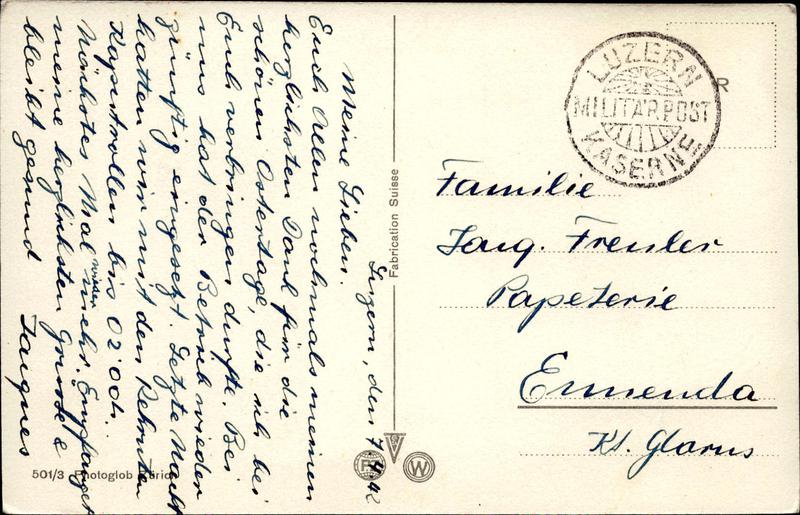 Luzern, den 7.4.42
Meine Lieben.
Euch Allen nochmals meinen
herzlichsten Dank für die
schönen Ostertage, die ich bei
Euch verbringen durfte. Bei
uns hat der Betrieb wieder
zünftig eingesetzt. Letzte Nacht
hatten wir mit den Rekruten
bis 02.00 h.
Nächstes Mal wieder mehr. Empfanget
meine herzlichsten Grüsse &
bleibt gesund Jacques
Fabrication Suisse
501/3 Photoglob Zürich
W
LUZERN
MILITÄR.POST
KASERNE
R
Familie
Jaeg. Freuler
Papeterie
Ennenda
Kt. Glarus